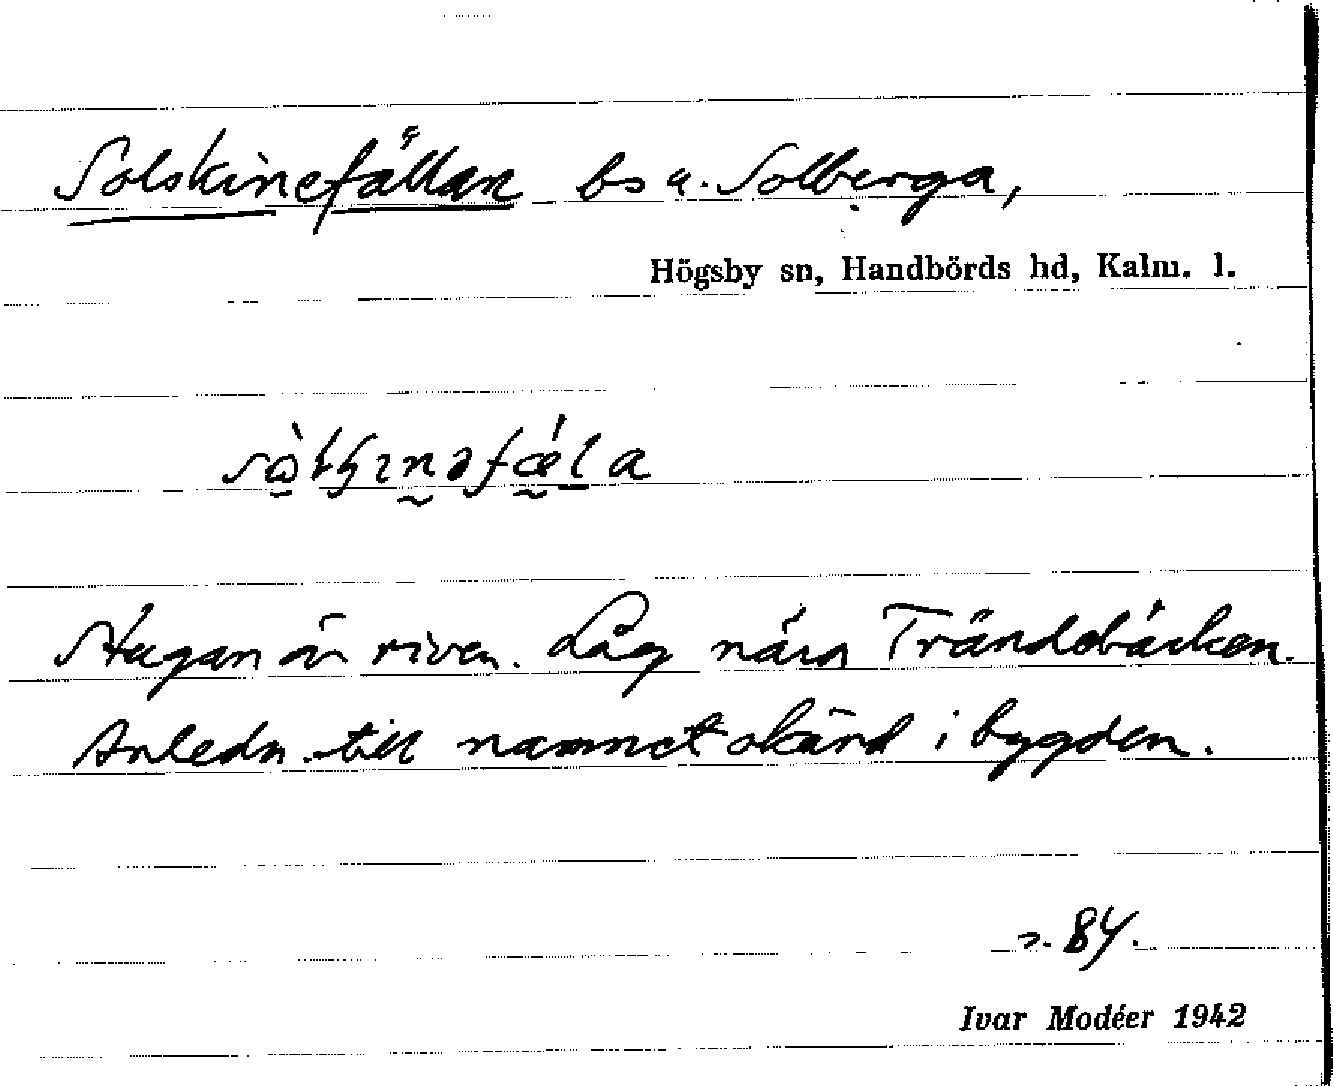 Solskinefällan bs u. Solberga,
Högsby sn, Handbörds hd, Kalm. l.
Stugan är riven. Låg nära Tränddebäcken.
Anledn. till namnet okänd i bygden.
s. 84.
Ivar Modéer 1942